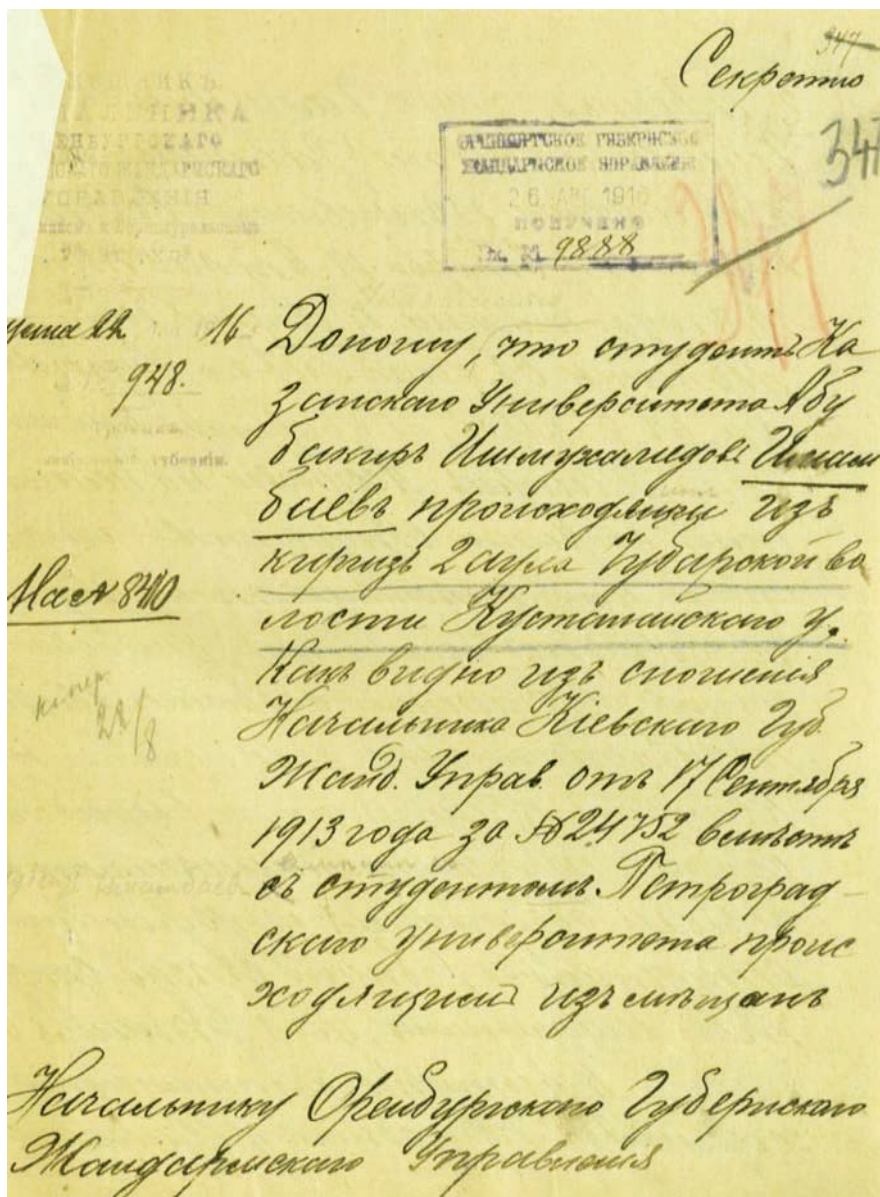 347
Секретно
347
ОРЕНБУРГСКОЕ ГУБЕРНСКОЕ
ЖАНДАРМСКОЕ УПРАВЛЕНИЕ
26 АВГ 1916
ПОЛУЧЕНО
Вх. № 9888
НИКЪ
ЕНБУРГСКАГО
УПРАВЛЕНІЯ
22 16
948.
Доношу, что студентъ Ка
занскаго Университета Абу
бакиръ Ишмухамедовъ
баевъ происходящи изъ
киргизъ 2 аула Губарской во
лости Кустанайскаго у.
Какъ видно изъ сношенія
Начальника Кіевскаго Губ.
Жанд. Управ. отъ 17 Сентября
1913 года за № 24752 вмѣстѣ
съ студентомъ Петроград-
скаго университета проис
ходящимъ изъ мѣщанъ
8410
28/8
Начальнику Оренбургскаго Губернскаго
Жандармскаго Управленія